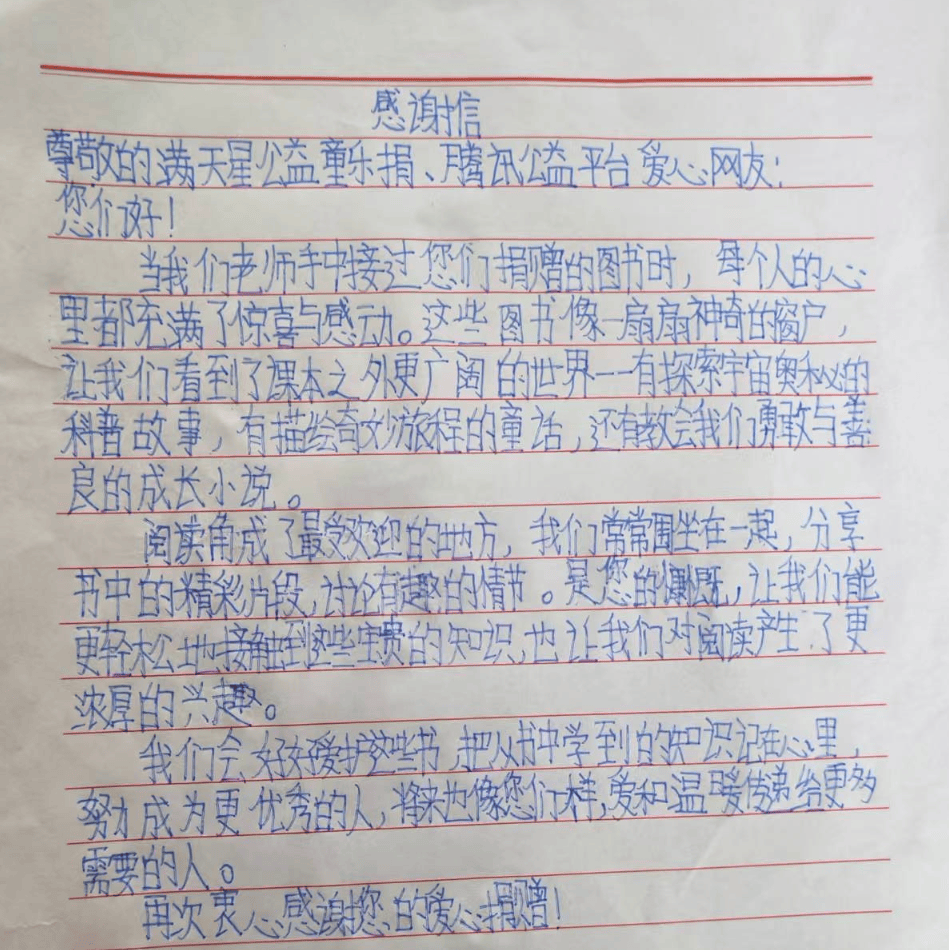 感谢信
尊敬的满天星公益童乐捐、腾讯公益平台爱心网友：
您们好！
当我们老师手中接过您们捐赠的图书时，每个人的心
里都充满了惊喜与感动。这些图书像一扇扇神奇的窗户，
让我们看到了课本之外更广阔的世界——有探索宇宙奥秘的
科普故事，有描绘奇妙旅程的童话，还有教会我们勇敢与善
良的成长小说。
阅读角成了最受欢迎的地方，我们常常围坐在一起，分享
书中的精彩片段，讨论有趣的情节。是您的慷慨，让我们能
更轻松地接触到这些宝贵的知识，也让我们对阅读产生了更
浓厚的兴趣。
我们会好好爱护这些书，把从书中学到的知识记在心里，
努力成为更优秀的人，将来也像您们样，爱和温暖传递给更多
需要的人。
再次衷心感谢您的爱心捐赠！